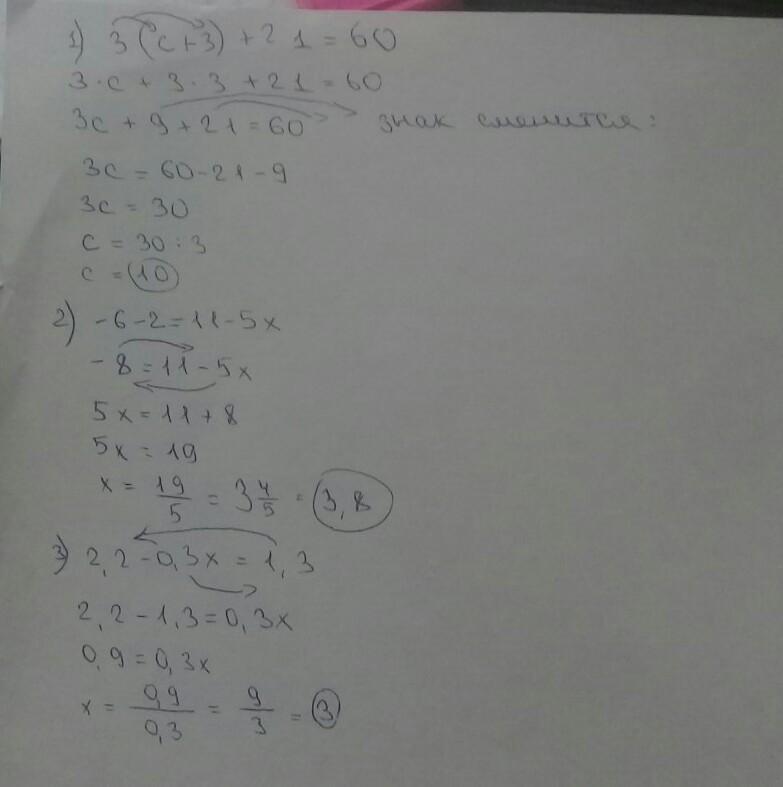 1) 3(c+3)+21=60
3·c+3·3+21=60
3c+9+21=60 знак сменится:
3c=60-21-9
3c=30
c=30:3
c=10
2) -6-2=11-5x
-8=11-5x
5x=11+8
5x=19
x=19/5=3 4/5=3,8
3) 2,2-0,3x=1,3
2,2-1,3=0,3x
0,9=0,3x
x=0,9/0,3=9/3=3